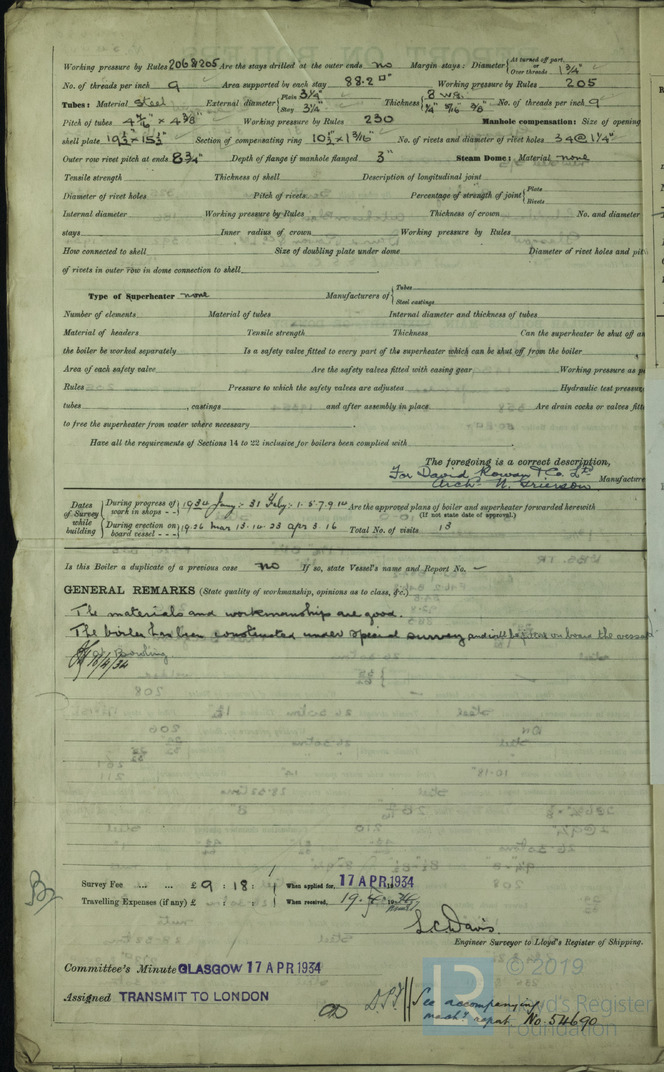 Working pressure by Rules 206 & 205 Are the stays drilled at the outer ends no Margin stays: Diameter { At turned off part, or Over threads 1 3/4"
No. of threads per inch 9 Area supported by each stay 88.2 □" Working pressure by Rules 205
Tubes: Material Steel External diameter { Plain 3 1/4" Stay 3 1/4" Thickness { 8 W.G. 1/4" 5/16" 3/8" No. of threads per inch 9
Pitch of tubes 4 7/16" × 4 3/8" Working pressure by Rules 230 Manhole compensation: Size of opening
shell plate 19 1/2" × 15 1/2" Section of compensating ring 10 1/2" × 1 3/16" No. of rivets and diameter of rivet holes 34 @ 1 1/4"
Outer row rivet pitch at ends 8 3/4" Depth of flange if manhole flanged 3" Steam Dome: Material none
Tensile strength Thickness of shell Description of longitudinal joint
Diameter of rivet holes Pitch of rivets Percentage of strength of joint { Plate Rivets
Internal diameter Working pressure by Rules Thickness of crown No. and diameter
stays Inner radius of crown Working pressure by Rules
How connected to shell Size of doubling plate under dome Diameter of rivet holes and pit
of rivets in outer row in dome connection to shell
Type of Superheater none Manufacturers of { Tubes Steel castings
Number of elements Material of tubes Internal diameter and thickness of tubes
Material of headers Tensile strength Thickness Can the superheater be shut off an
the boiler be worked separately Is a safety valve fitted to every part of the superheater which can be shut off from the boiler
Area of each safety valve Are the safety valves fitted with easing gear Working pressure as p
Rules Pressure to which the safety valves are adjusted Hydraulic test pressure
tubes , castings and after assembly in place Are drain cocks or valves fitt
to free the superheater from water where necessary
Have all the requirements of Sections 14 to 22 inclusive for boilers been complied with
The foregoing is a correct description,
For David Rowan & Co. Ltd Manufacture
Arch. W. Grierson
Dates of Survey while building { During progress of work in shops - - } 1934 Jany:- 31 Feby:- 1. 5. 7. 9. 10 Are the approved plans of boiler and superheater forwarded herewith
(If not state date of approval.)
{ During erection on board vessel - - - } Mar 13. 14. 23 Apr 3. 16 Total No. of visits 13
Is this Boiler a duplicate of a previous case no If so, state Vessel's name and Report No. —
GENERAL REMARKS (State quality of workmanship, opinions as to class, &c.)
The materials and workmanship are good.
The boiler has been constructed under special survey and will be fitted on board the vessel
at Bowling
16/4/34
Survey Fee ... ... £ 9 : 18 : When applied for, 17 APR 1934
Travelling Expenses (if any) £ : : When received, 19
S.C. Davis.
Engineer Surveyor to Lloyd's Register of Shipping.
Committee's Minute GLASGOW 17 APR 1934
Assigned TRANSMIT TO LONDON
See accompanying
mach'y report. No. 54690
© 2019
Lloyd's Register
Foundation